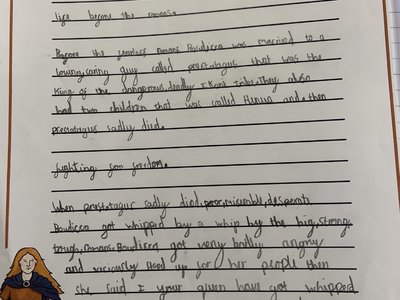 life before the romans.
Before the fearless romans Boudicca was married to a
loving, caring guy called prastatagus that was the
King of the dangerous, deadly I Keni tribe. They
had two children that was called and then
prestatagus sadly died.
fighting for freedom.
When prestatagus sadly died, poor, miserable,
Boudicca got whipped by a whip by the big, strong,
tough, romans. Boudicca got very angry
and viciously stood up for her people then
she said I your queen have got whipped